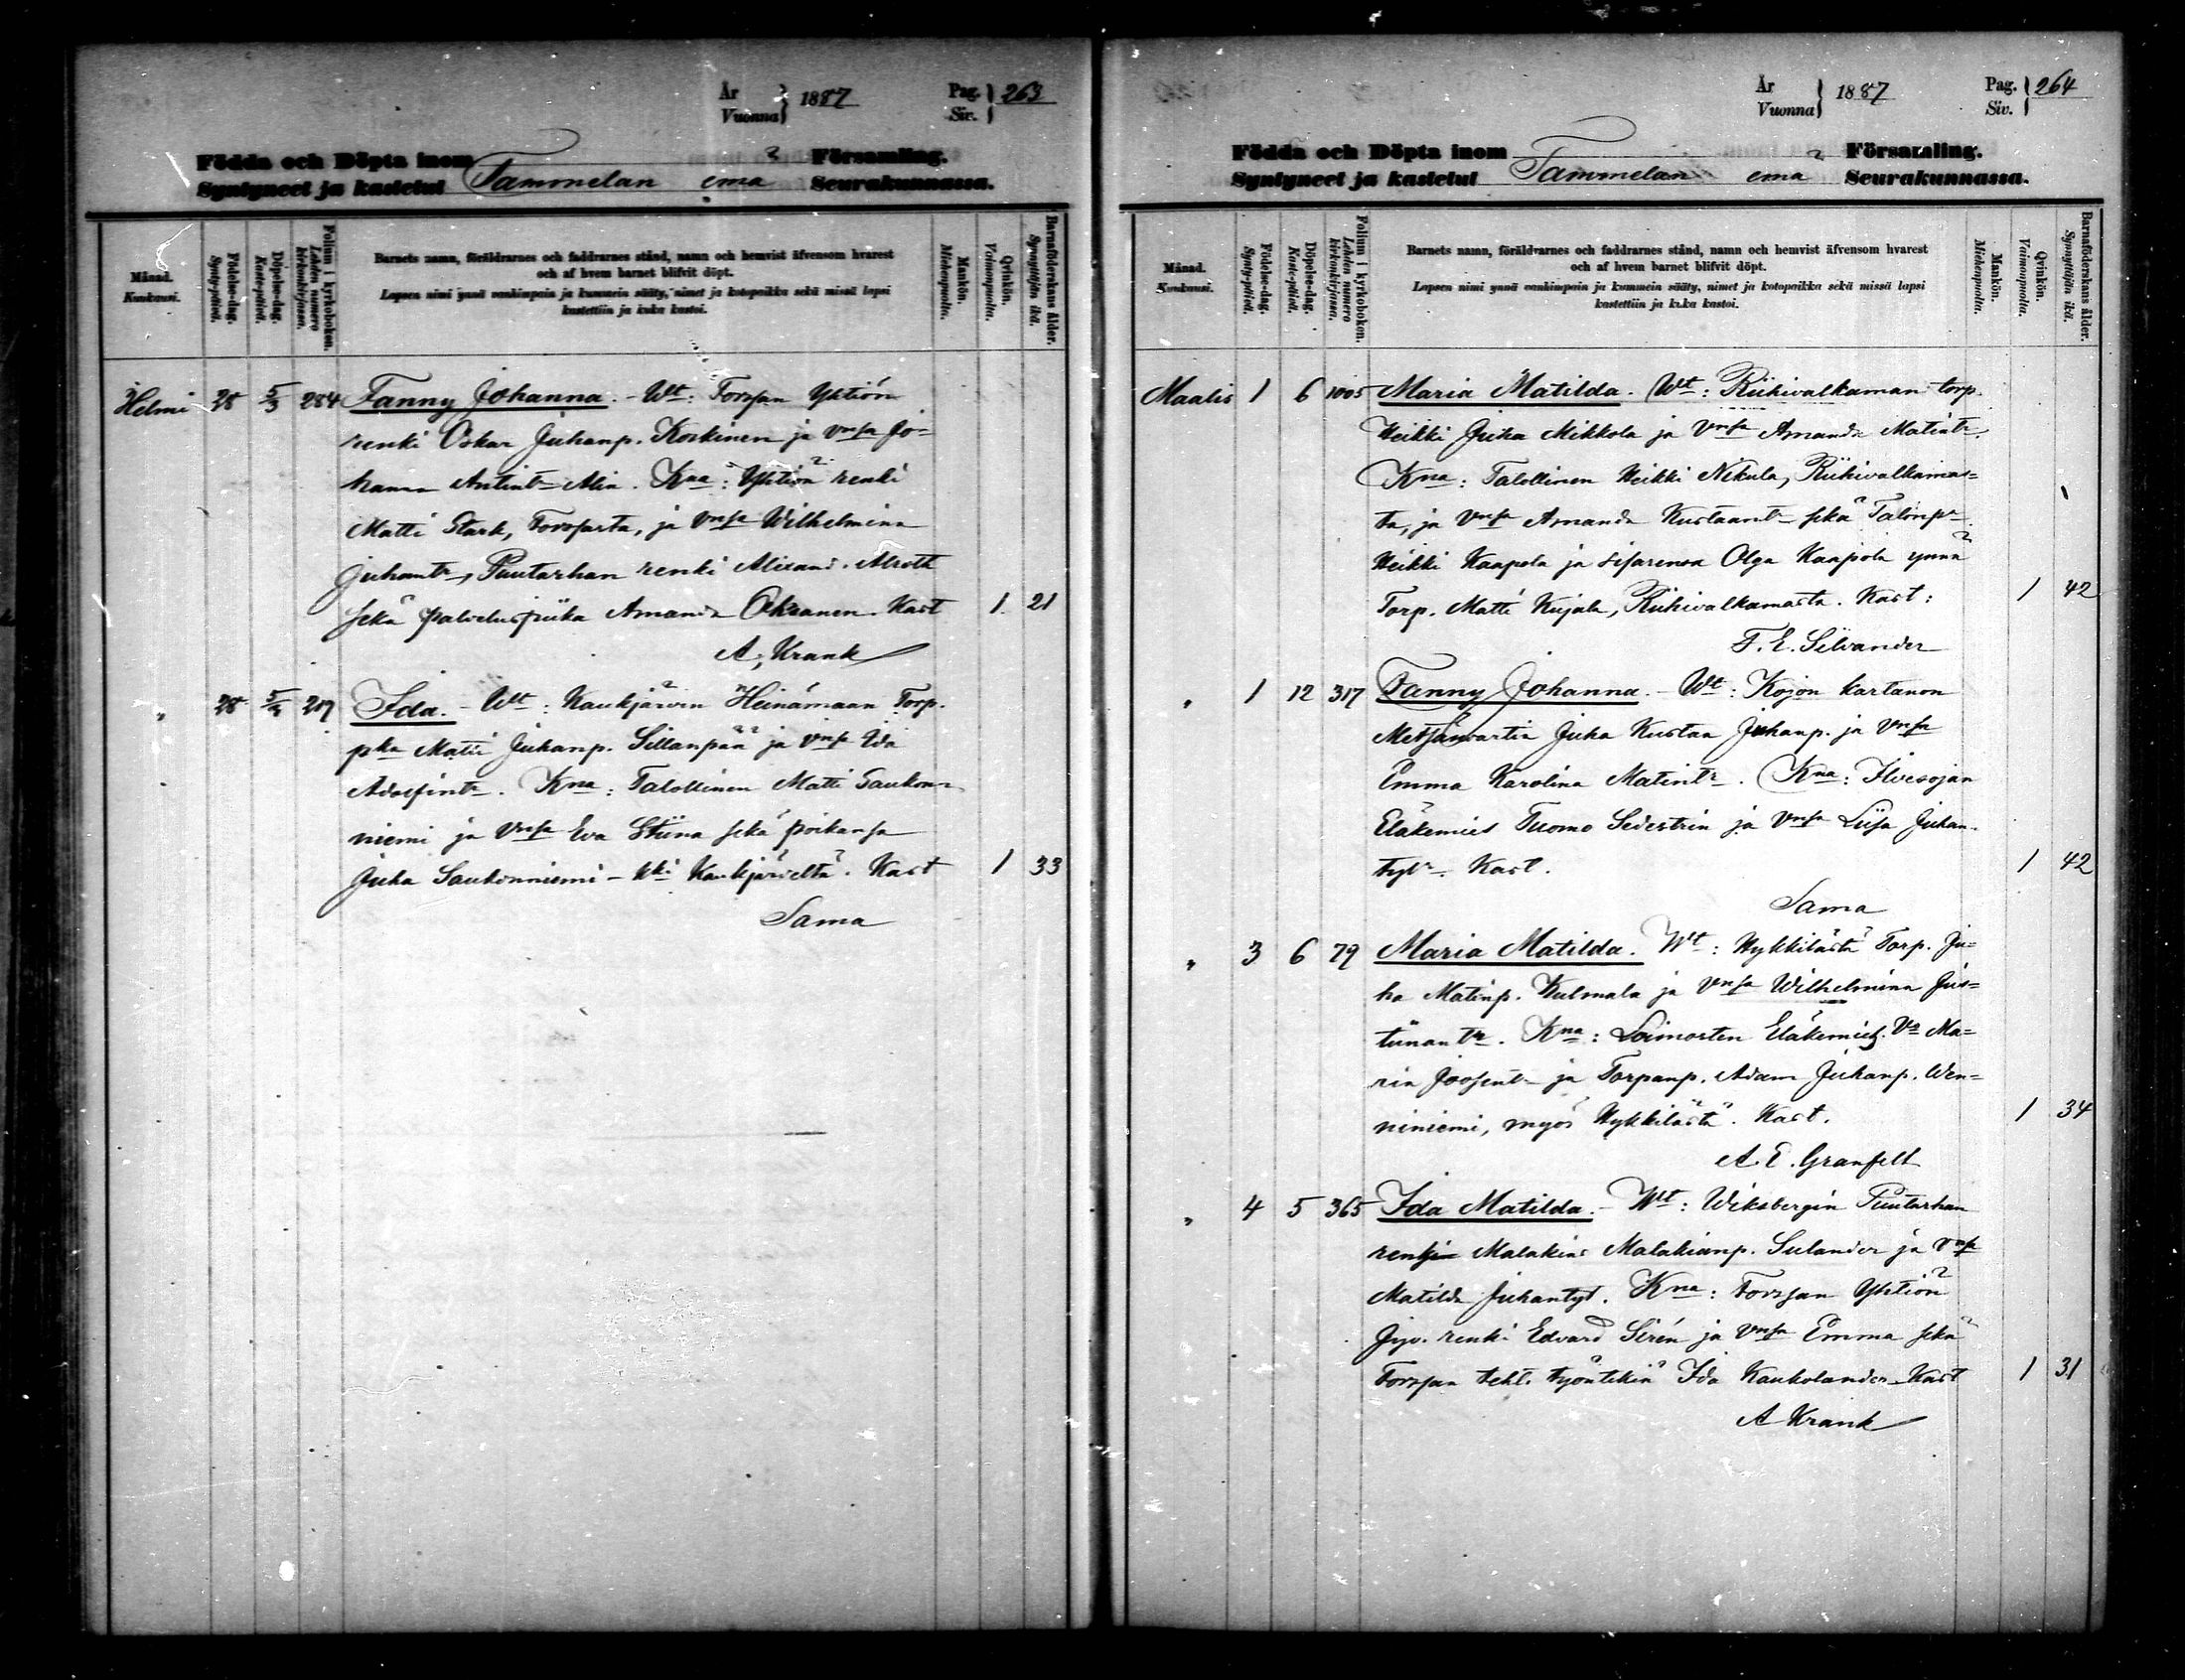 År
Vuonna } 1887
Pag.
Siv. } 263
Födda och Döpta inom
Syntyneet ja kastetut Tammelan emä Församling.
Seurakunnassa.
Månad.
Kuukausi.
Födelse-dag.
Synty-päivä.
Döpelse-dag.
Kaste-päivä.
Folium i kyrkoboken.
Lehden numero kirkonkirjassa.
Barnets namn, föräldrarnes och faddrarnes stånd, namn och hemvist äfvensom hvarest
och af hvem barnet blifvit döpt.
Lapsen nimi ynnä vanhimpain ja kummein sääty, nimet ja kotopaikka sekä missä lapsi
kastettiin ja kuka kastoi.
Mankön.
Miehenpuolta.
Qvinkön.
Vaimonpuolta.
Barnaföderskans ålder.
Synnyttäjän ikä.
Helmi 28 5/3 284 Fanny Johanna. - Wt: Forssan Yhtiön
renki Oskar Juhanp. Koskinen ja Vnsa Jo=
hanna Antintr Alin. Kna: Yhtiön renki
Matti Stark, Forssasta, ja Vnsa Wilhelmina
Juhantr, Puutarhan renki Alixand. Alroth
sekä palveluspiika Amanda Oksanen. Kast 1. 21
A. Krank
" 28 5/3 209 Ida. - Wt: Kaukjärven Heinämaan Torp.
pka Matti Juhanp. Sillanpää ja Vnsa Ida
Adolfintr. Kna: Talollinen Matti Saukon=
niemi ja Vnsa Eva Stiina sekä poikansa
Juha Saukonniemi - kki Kaukjärveltä. Kast 1 33
Sama
År
Vuonna } 1887
Pag.
Siv. } 264
Födda och Döpta inom
Syntyneet ja kastetut Tammelan emä Församling.
Seurakunnassa.
Månad.
Kuukausi.
Födelse-dag.
Synty-päivä.
Döpelse-dag.
Kaste-päivä.
Folium i kyrkoboken.
Lehden numero kirkonkirjassa.
Barnets namn, föräldrarnes och faddrarnes stånd, namn och hemvist äfvensom hvarest
och af hvem barnet blifvit döpt.
Lapsen nimi ynnä vanhimpain ja kummein sääty, nimet ja kotopaikka sekä missä lapsi
kastettiin ja kuka kastoi.
Mankön.
Miehenpuolta.
Qvinkön.
Vaimonpuolta.
Barnaföderskans ålder.
Synnyttäjän ikä.
Maalis 1 6 1005 Maria Matilda. Wt: Riihivalkaman torp.
Heikki Juha Mikkola ja Vnsa Amanda Matintr.
Kna: Talollinen Heikki Nikula, Riihivalkamas=
ta, ja Vnsa Amanda Kustaantr sekä Talonpr
Heikki Kaapola ja sisarensa Olga Kaapola ynnä
Torp. Matti Kujala, Riihivalkamasta. Kast: 1 42
F. E. Silvander
" 1 12 317 Fanny Johanna. - Wt: Kojon kartanon
Metsänvartia Juha Kustaa Juhanp. ja Vnsa
Emma Karolina Matintr. Kna: Ilvesojan
Eläkemies Tuomo Sederstrin ja Vnsa Liisa Juhan-
tytr. Kast. 1 42
Sama
" 3 6 79 Maria Matilda. Wt: Hykkilästä Torp. Ju=
ha Matinp. Kulmala ja Vnsa Wilhelmina Jus=
tiinantr. Kna: Loimosten Eläkemieh. Va Ma=
ria Joosentr ja Torpanp. Adam Juhanp. Wen=
niniemi, myös Hykkilästä. Kast. 1 34
A. E. Granfelt
" 4 5 365 Ida Matilda. - Wt: Wiksbergin Puutarhan
renki Malakias Malakianp. Sulander ja Vnsa
Matilda Juhantyt. Kna: Forssan Yhtiön
Jyv. renki Edvard Sirén ja Vnsa Emma sekä
Forssan teht. työntekiä Ida Kaukolander. Kast 1 31
A Krank